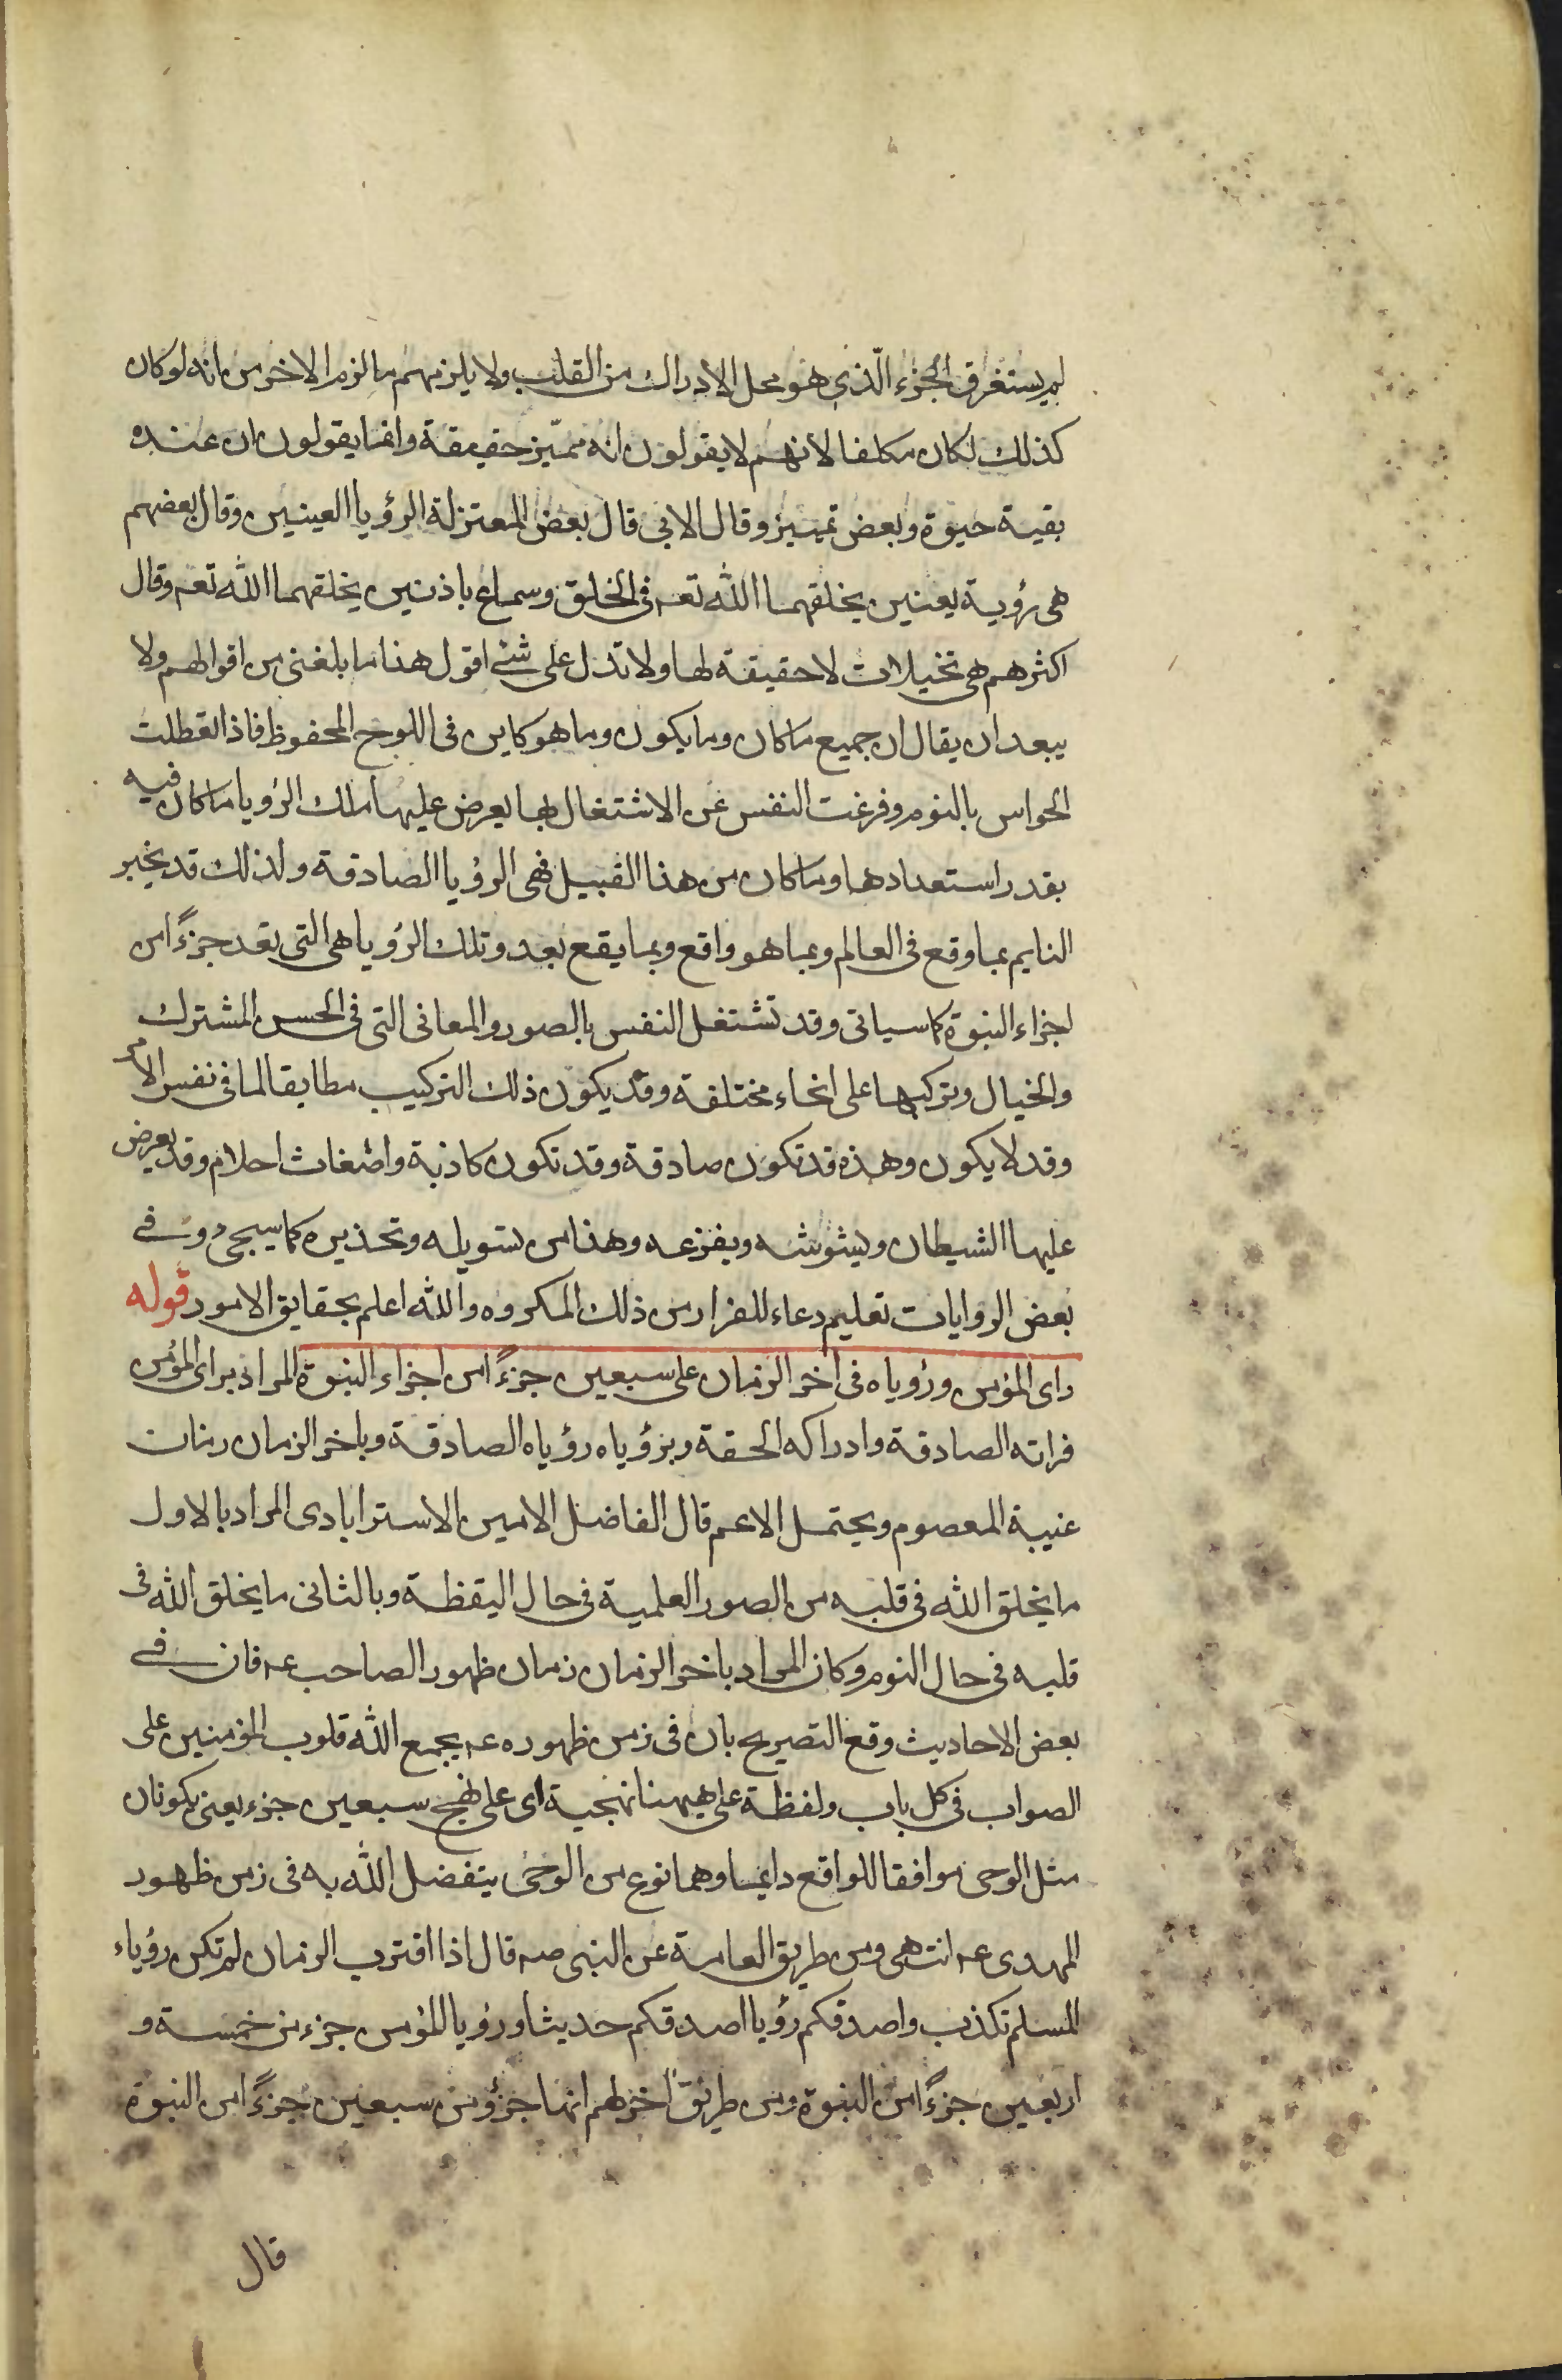 لم يستغرق الجزء الّذي هو محل الادراك من القلب ولا يلزمهم ما لزم الاخر من انه لو كان
كذلك لكان مكلفا لانهم لا يقولون انه مميّز حقيقة وانما يقولون ان عنده
بقية حيوة وبعض تمييز وقال الابى قال بعض المعتزلة الرؤيا العينين وقال بعضهم
هى رؤية بعينين يخلقهما الله تعـ فى الخلق وسماع باذنين يخلقهما الله تعـ وقال
اكثرهم هى تخيلات لا حقيقة لها ولا تدل على شئ اقول هذا ما بلغنى من اقوالهم ولا
يبعد ان يقال ان جميع ما كان وما يكون وما هو كاين فى اللوح المحفوظ فاذا تعطلت
الحواس بالنوم وفرغت النفس عن الاشتغال بها يعرض عليها ملك الرؤيا ما كان فيه
بقدر استعدادها وما كان من هذا القبيل فهى الرؤيا الصادقة ولذلك قد يخبر
النايم بما وقع فى العالم وبما هو واقع وبما يقع بعد وتلك الرؤيا هى التى تعد جزءًا من
اجزاء النبوة كما سياتى وقد تشتغل النفس بالصور والمعانى التى فى الحس المشترك
والخيال وتركبها على انحاء مختلفة وقد يكون ذلك التركيب مطابقا لما فى نفس الامر
وقد لا يكون وهذه قد تكون صادقة وقد تكون كاذبة واضغاث احلام وقد يعرض
عليها الشيطان ويشوشه ويفزعه وهذا من تسويله وتحذيره كما سيجئ وفى
بعض الروايات تعليم دعاء للفرار من ذلك المكروه والله اعلم بحقايق الامور قوله
راى المؤمن ورؤياه فى اخر الزمان على سبعين جزءًا من اجزاء النبوة المراد براى المؤمن
فراته الصادقة وادراكه الحقة وبرؤياه رؤياه الصادقة وباخر الزمان زمان
غيبة المعصوم ويحتمل الاعم قال الفاضل الامين الاسترابادى المراد بالاول
ما يخلق الله فى قلبه من الصور العلمية فى حال اليقظة وبالثانى ما يخلق الله فى
قلبه فى حال النوم وكان المراد باخر الزمان زمان ظهور الصاحب عـ فان فى
بعض الاحاديث وقع التصريح بان فى زمن ظهوره عـ يجمع الله قلوب المؤمنين على
الصواب فى كل باب ولفظة على هيهنا نهجية اى على نهج سبعين جزء يعنى يكونان
مثل الوحى موافقا للواقع دايما وهما نوع من الوحى يتفضل الله به فى زمن ظهور
المهدى عـ انتهى ومن طريق العامة عن النبى صـ قال اذا اقترب الزمان لم تكن رؤياء
المسلم تكذب واصدقكم رؤيا اصدقكم حديثا ورؤيا المؤمن جزء من خمسة و
اربعين جزءًا من النبوة ومن طريق اخر لهم انها جزؤ من سبعين جزءًا من النبوة
قال